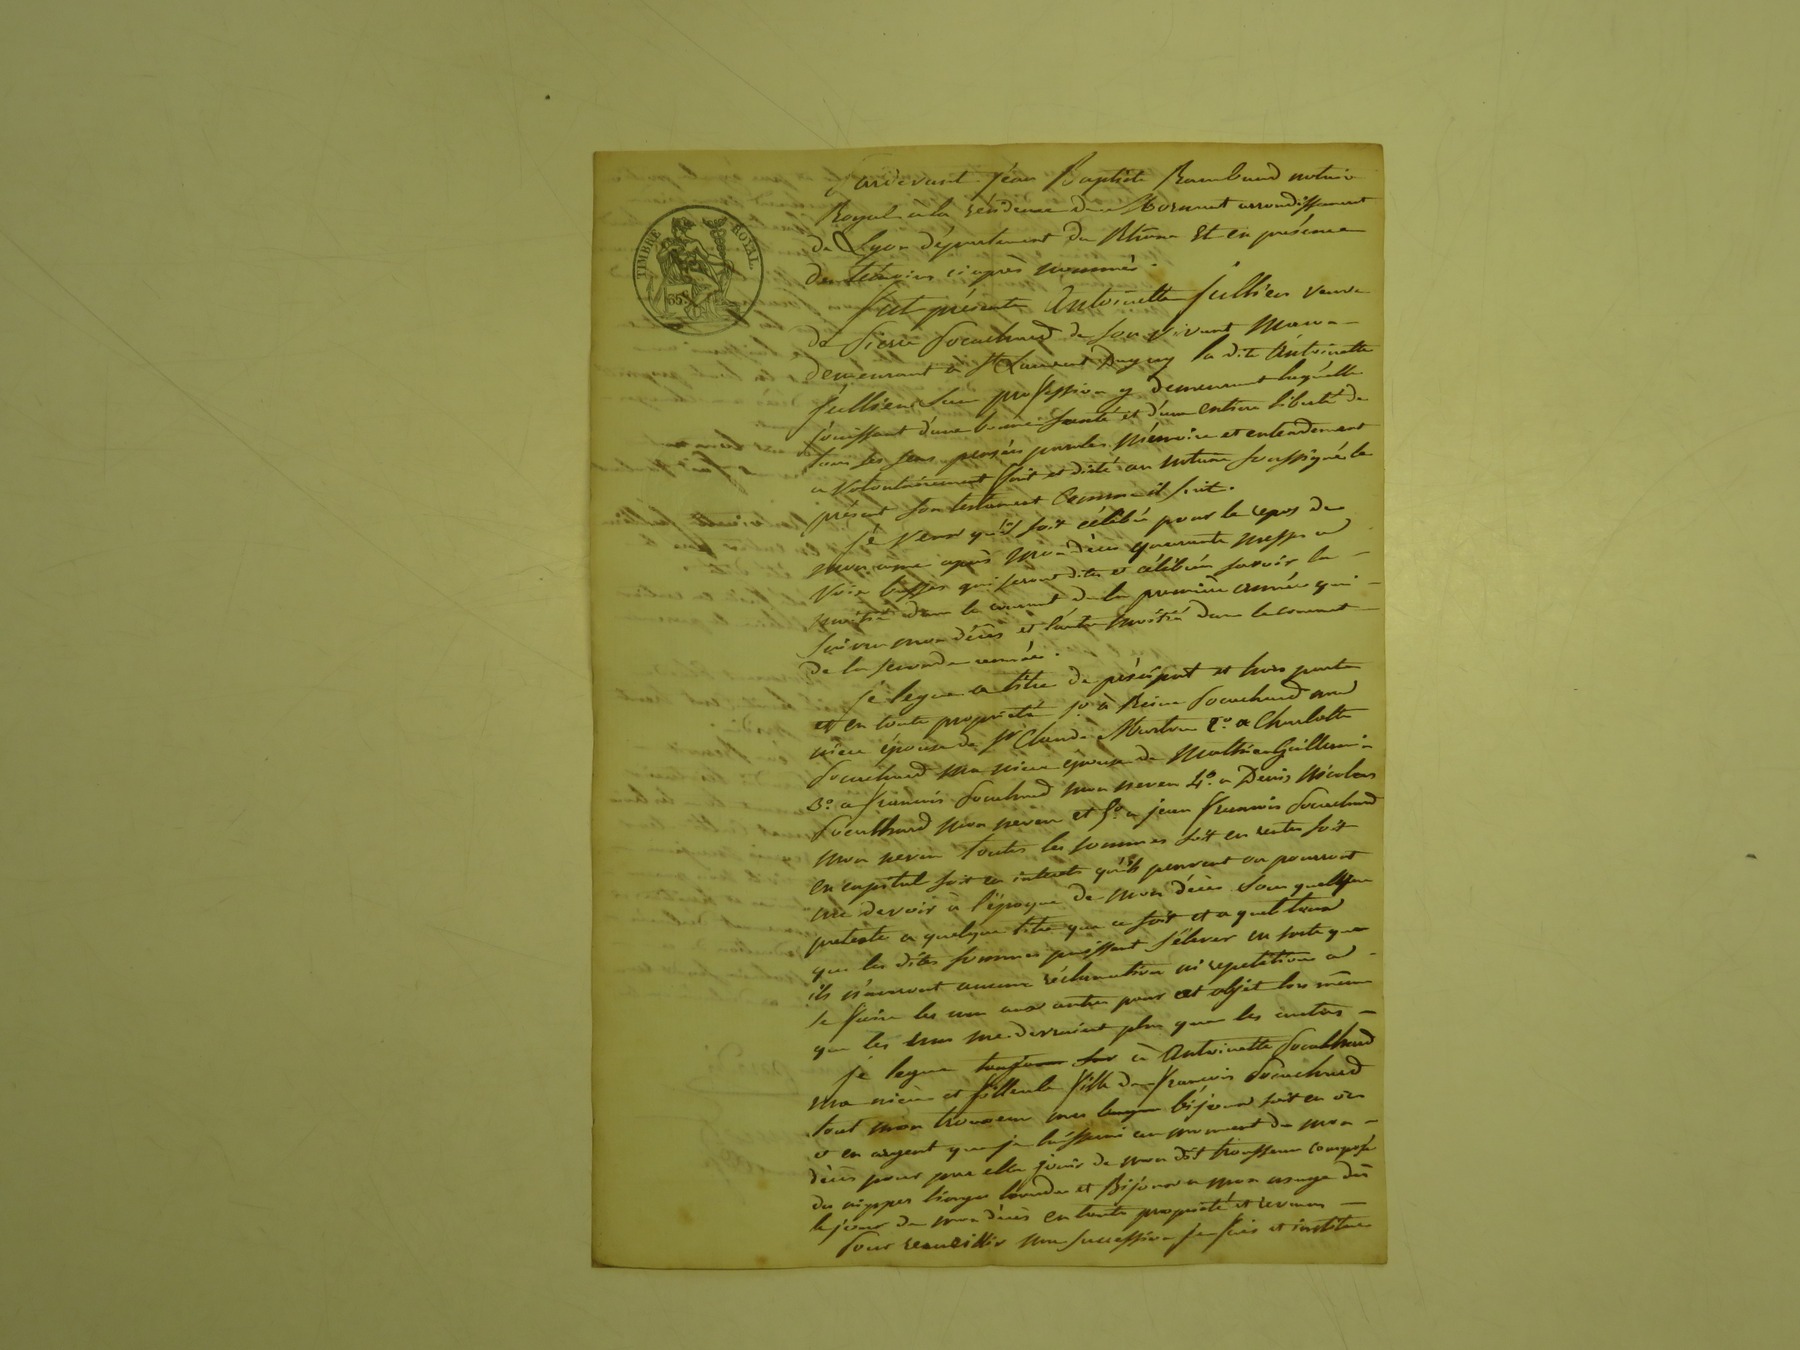 TIMBRE ROYAL
35
Pardevant Jean Baptiste Rambaud notaire
Royal à la résidence de Mornant arrondissement
de Lyon département du Rhône Et en présence
des témoins ci après nommés.
Fut présente Antoinette Jullien veuve
de Pierre de son vivant
demeurant à St Laurent Dagny la dite Antoinette
Jullien sans profession y demeurant laquelle
jouissant d'une bonne santé et d'une entière liberté de
tous ses sens pensées paroles mémoire et entendement
a volontairement fait et dicté au notaire soussigné le
présent son testament Comme il suit.
Je veux qu'il soit célébré pour le repos de
mon ame après mon décès quarante messes a
voix basses qui seront dites et célébrées savoir la
moitié dans le courant de la première année qui
suivra mon décès et l'autre moitié dans le courant
de la seconde année.
je legue a titre de préciput et hors parte
et en toute propriété 1o à Reine ma
nièce épouse de Sr Claude 2o a Charlotte
ma nièce épouse de Mathieu
3o a François mon neveu 4o a Denis Nicolas
mon neveu et 5o a jean François
mon neveu toutes les sommes soit en rentes soit
en capital soit en interets qu'ils peuvent ou pourront
me devoir à l'époque de mon décès sous quelque
pretexte a quelque titre que ce soit et a quel taux
que les dites sommes puissent s'élever en sorte que
ils n'auront aucune réclamation ni repetition a
se faire les uns aux autres pour cet objet lors même
que les uns me devraient plus que les autres
je legue à Antoinette
ma nièce et filleule fille de François
tout mon trousseau mes bijoux soit en or
et en argent que je laisserai au moment de mon
décès pour par elle jouir de mon dit trousseau composé
de nippes linges hardes et Bijoux a mon usage dès
le jour de mon décès en toute propriété et revenus
Pour recueillir ma succession je fais et institue